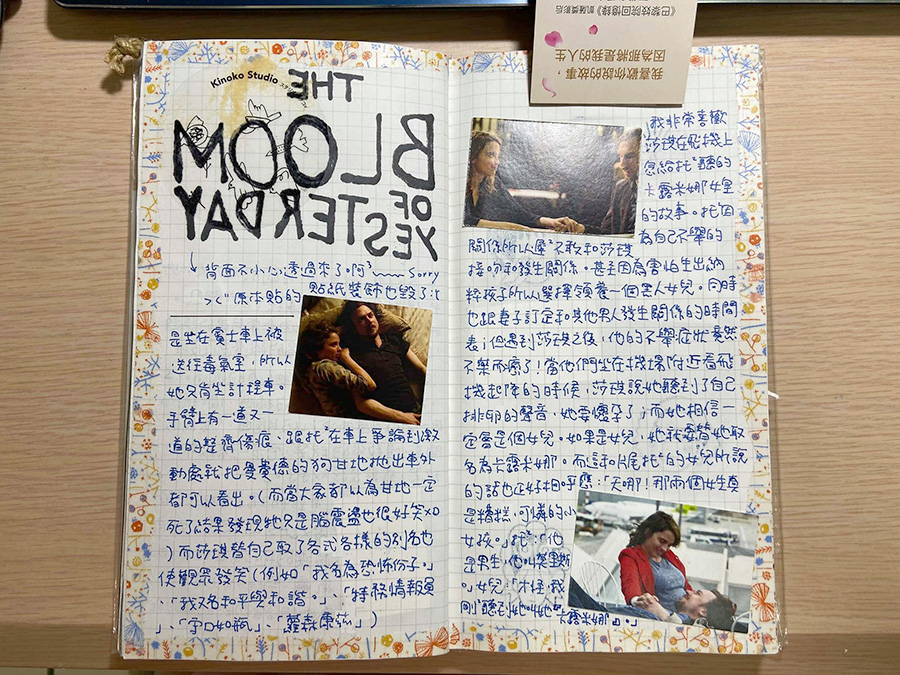 《巴黎妓院回憶錄》凱薩獎影后
因為那將是我的人生
我喜歡你說的故事,
Kinoko Studio
THE
BLOOM
OF
YESTERDAY
背面不小心透過來了啊 Sorry
原本貼的貼紙裝飾也毀了:(
是坐在賓士車上被
送往毒氣室,所以
她只肯坐計程車。
手臂上有一道又一
道的整齊傷痕、跟托在車上爭論到激
動處就把曼費德的狗甘地拋出車外
都可以看出。(而當大家都以為甘地一定
死了結果發現牠只是腦震盪也很好笑XD
)而莎琪替自己取了各式各樣的別名也
使觀眾發笑(例如「我名為恐怖份子。」
、「我又名和平與和諧。」、「特務情報員
」、「守口如瓶」、「蘿森康茲」)
我非常喜歡
莎琪在飛機上
念給托聽的
卡露米娜女星
的故事。托因
為自己不舉的
關係所以屢不敢和莎琪
接吻和發生關係。甚至因為害怕生出納
粹孩子所以選擇領養一個黑人女兒。同時
也跟妻子訂定和其他男人發生關係的時間
表;但遇到莎琪之後,他的不舉症狀竟然
不藥而癒了!當他們坐在機場附近看飛
機起降的時候,莎琪說她聽到了自己
排卵的聲音,她要懷孕了;而她相信一
定會是個女兒。如果是女兒,她我要替她取
名為卡露米娜。而這和片尾托的女兒所說
的話也正好相呼應:「天哪!那兩個女生真
是糟糕,可憐的小
女孩。」托:「他
是男生,他叫
。」女兒:「才怪,我
剛聽到她叫她
卡露米娜」。